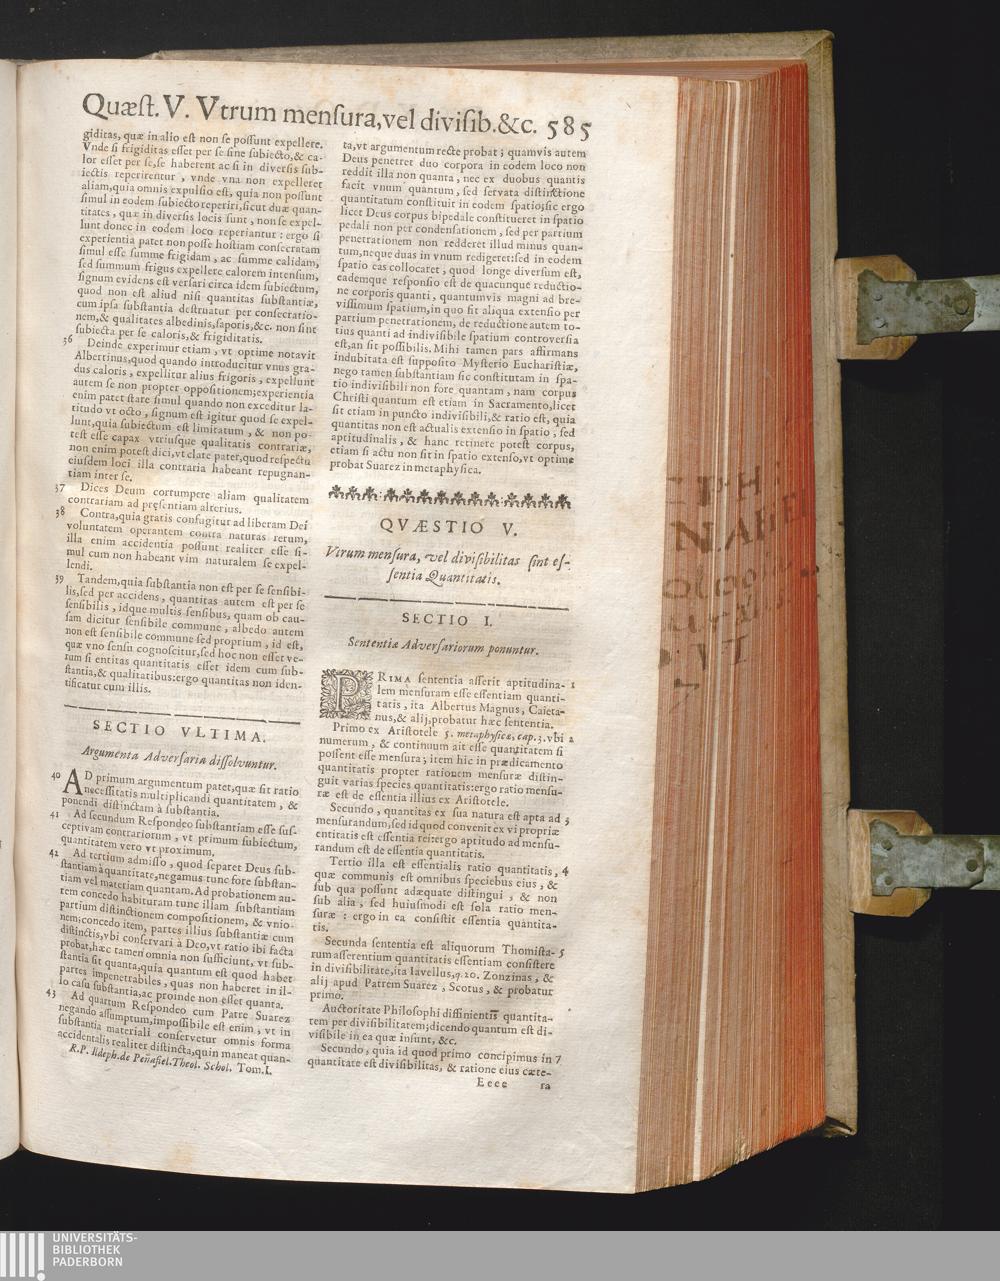 Quæst. V. Vtrum mensura, vel divisib. &c. 585
giditas, quæ in alio est non se possunt expellere.
Vnde si frigiditas esset per se sine subiecto, & ca-
lor esset per se, se haberent ac si in diversis sub-
iectis reperirentur, vnde vna non expelleret
aliam, quia omnis expulsio est, quia non possunt
simul in eodem subiecto reperiri, sicut duæ quan-
titates, quæ in diversis locis sunt, non se expel-
lunt donec in eodem loco reperiantur: ergo si
experientia patet non posse hostiam consecratam
simul esse summe frigidam, ac summe calidam,
sed summum frigus expellere calorem intensum,
signum evidens est versari circa idem subiectum,
quod non est aliud nisi quantitas substantiæ,
cum ipsa substantia destruatur per consecratio-
nem, & qualitates albedinis, saporis, &c. non sint
subiecta per se caloris, & frigiditatis.
36 Deinde experimur etiam, vt optime notavit
Albertinus, quod quando introducitur vnus gra-
dus caloris, expellitur alius frigoris, expellunt
autem se non propter oppositionem; experientia
enim patet stare simul quando non exceditur la-
titudo vt octo, signum est igitur quod se expel-
lunt, quia subiectum est limitatum, & non po-
test esse capax vtriusque qualitatis contrariæ,
non enim potest dici, vt clare patet, quod respectu
eiusdem loci illa contraria habeant repugnan-
tiam inter se.
37 Dices Deum corrumpere aliam qualitatem
contrariam ad præsentiam alterius.
38 Contra, quia gratis confugitur ad liberam Dei
voluntatem operantem contra naturas rerum,
illa enim accidentia possunt realiter esse si-
mul cum non habeant vim naturalem se expel-
lendi.
39 Tandem, quia substantia non est per se sensibi-
lis, sed per accidens, quantitas autem est per se
sensibilis, idque multis sensibus, quam ob cau-
sam dicitur sensibile commune, albedo autem
non est sensibile commune sed proprium, id est,
quæ vno sensu cognoscitur, sed hoc non esset ve-
rum si entitas quantitatis esset idem cum sub-
stantia, & qualitatibus: ergo quantitas non iden-
tificatur cum illis.
SECTIO VLTIMA.
Argumenta Adversaria dissolvuntur.
40 AD primum argumentum patet, quæ sit ratio
necessitatis multiplicandi quantitatem, &
ponendi distinctam à substantia.
41 Ad secundum Respondeo substantiam esse sus-
ceptivam contrariorum, vt primum subiectum,
quantitatem vero vt proximum.
42 Ad tertium admisso, quod separet Deus sub-
stantiam à quantitate, negamus tunc fore substan-
tiam vel materiam quantam. Ad probationem au-
tem concedo habituram tunc illam substantiam
partium distinctionem compositionem, & vnio-
nem; concedo item, partes illius substantiæ cum
distinctis, vbi conservari à Deo, vt ratio ibi facta
probat, hæc tamen omnia non sufficiunt, vt sub-
stantia sit quanta, quia quantum est quod habet
partes impenetrabiles, quas non haberet in il-
lo casu substantia, ac proinde non esset quanta.
43 Ad quartum Respondeo cum Patre Suarez
negando assumptum, impossibile est enim, vt in
substantia materiali conservetur omnis forma
accidentalis realiter distincta, quin maneat quan-
R.P. Ildeph. de Peñafiel. Theol. Schol. Tom. I.
ta, vt argumentum recte probat; quamvis autem
Deus penetret duo corpora in eodem loco non
reddit illa non quanta, nec ex duobus quantis
facit vnum quantum, sed servata distinctione
quantitatum constituit in eodem spatio; sic ergo
licet Deus corpus bipedale constitueret in spatio
pedali non per condensationem, sed per partium
penetrationem non redderet illud minus quan-
tum, neque duas in vnum redigeret: sed in eodem
spatio eas collocaret, quod longe diversum est,
eademque responsio est de quacunque reductio-
ne corporis quanti, quantumvis magni ad bre-
vissimum spatium, in quo sit aliqua extensio per
partium penetrationem, de reductione autem to-
tius quanti ad indivisibile spatium controversia
est, an sit possibilis. Mihi tamen pars affirmans
indubitata est supposito Mysterio Eucharistiæ,
nego tamen substantiam sic constitutam in spa-
tio indivisibili non fore quantam, nam corpus
Christi quantum est etiam in Sacramento, licet
sit etiam in puncto indivisibili, & ratio est, quia
quantitas non est actualis extensio in spatio, sed
aptitudinalis, & hanc retinere potest corpus,
etiam si actu non sit in spatio extenso, vt optime
probat Suarez in metaphysica.
QVÆSTIO V.
Vtrum mensura, vel divisibilitas sint es-
sentia Quantitatis.
SECTIO I.
Sententiæ Adversariorum ponuntur.
PRIMA sententia asserit aptitudina- 1
lem mensuram esse essentiam quanti-
tatis, ita Albertus Magnus, Caieta-
nus, & alij, probatur hæc sententia.
Primo ex Aristotele 5. metaphysicæ, cap. 3. vbi 2
numerum, & continuum ait esse quantitatem si
possent esse mensura; item hic in prædicamento
quantitatis propter rationem mensuræ distin-
guit varias species quantitatis: ergo ratio mensu-
ræ est de essentia illius ex Aristotele.
Secundo, quantitas ex sua natura est apta ad 3
mensurandum, sed id quod convenit ex vi propriæ
entitatis est essentia rei: ergo aptitudo ad mensu-
randum est de essentia quantitatis.
Tertio illa est essentialis ratio quantitatis, 4
quæ communis est omnibus speciebus eius, &
sub qua possunt adæquate distingui, & non
sub alia, sed huiusmodi est sola ratio men-
suræ: ergo in ea consistit essentia quantita-
tis.
Secunda sententia est aliquorum Thomista- 5
rum asserentium quantitatis essentiam consistere
in divisibilitate, ita Iavellus, q. 20. Zonzinas, &
alij apud Patrem Suarez, Scotus, & probatur
primo.
Auctoritate Philosophi diffinientis quantita-
tem per divisibilitatem; dicendo quantum est di-
visibile in ea quæ insunt, &c.
Secundo, quia id quod primo concipimus in 7
quantitate est divisibilitas, & ratione eius cæte-
Eeee ra
UNIVERSITÄTS-
BIBLIOTHEK
PADERBORN